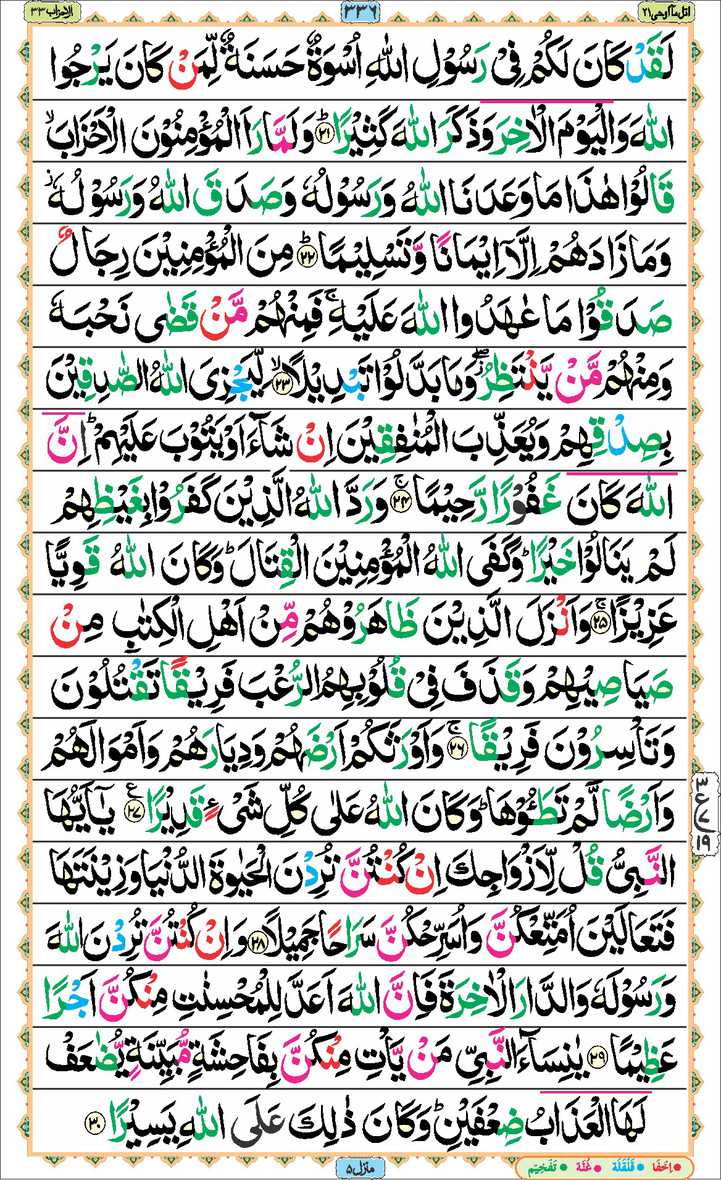 اتل مآ اوحی ۲۱
۳۳۶
الاحزاب ۳۳
لَقَدْ كَانَ لَكُمْ فِیْ رَسُوْلِ اللّٰهِ اُسْوَةٌ حَسَنَةٌ لِّمَنْ كَانَ یَرْجُوا
اللّٰهَ وَالْیَوْمَ الْاٰخِرَ وَذَكَرَ اللّٰهَ كَثِیْرًاؕ ۲۱ وَلَمَّا رَاَ الْمُؤْمِنُوْنَ الْاَحْزَابَۙ
قَالُوْا هٰذَا مَا وَعَدَنَا اللّٰهُ وَرَسُوْلُهٗ وَصَدَقَ اللّٰهُ وَرَسُوْلُهٗ٘
وَمَا زَادَهُمْ اِلَّاۤ اِیْمَانًا وَّتَسْلِیْمًاؕ ۲۲ مِنَ الْمُؤْمِنِیْنَ رِجَالٌ
صَدَقُوْا مَا عٰهَدُوا اللّٰهَ عَلَیْهِۚ فَمِنْهُمْ مَّنْ قَضٰی نَحْبَهٗ
وَمِنْهُمْ مَّنْ یَّنْتَظِرُ٘ۖ وَمَا بَدَّلُوْا تَبْدِیْلًاۙ ۲۳ لِّیَجْزِیَ اللّٰهُ الصّٰدِقِیْنَ
بِصِدْقِهِمْ وَیُعَذِّبَ الْمُنٰفِقِیْنَ اِنْ شَآءَ اَوْ یَتُوْبَ عَلَیْهِمْؕ اِنَّ
اللّٰهَ كَانَ غَفُوْرًا رَّحِیْمًاۚ ۲۴ وَرَدَّ اللّٰهُ الَّذِیْنَ كَفَرُوْا بِغَیْظِهِمْ
لَمْ یَنَالُوْا خَیْرًاؕ وَكَفَی اللّٰهُ الْمُؤْمِنِیْنَ الْقِتَالَؕ وَكَانَ اللّٰهُ قَوِیًّا
عَزِیْزًاۚ ۲۵ وَاَنْزَلَ الَّذِیْنَ ظَاهَرُوْهُمْ مِّنْ اَهْلِ الْكِتٰبِ مِنْ
صَیَاصِیْهِمْ وَقَذَفَ فِیْ قُلُوْبِهِمُ الرُّعْبَ فَرِیْقًا تَقْتُلُوْنَ
وَتَاْسِرُوْنَ فَرِیْقًاۚ ۲۶ وَاَوْرَثَكُمْ اَرْضَهُمْ وَدِیَارَهُمْ وَاَمْوَالَهُمْ
وَاَرْضًا لَّمْ تَطَـُٔوْهَاؕ وَكَانَ اللّٰهُ عَلٰی كُلِّ شَیْءٍ قَدِیْرًا ع ۲۷ یٰۤاَیُّهَا
النَّبِیُّ قُلْ لِّاَزْوَاجِكَ اِنْ كُنْتُنَّ تُرِدْنَ الْحَیٰوةَ الدُّنْیَا وَزِیْنَتَهَا
فَتَعَالَیْنَ اُمَتِّعْكُنَّ وَاُسَرِّحْكُنَّ سَرَاحًا جَمِیْلًا ۲۸ وَاِنْ كُنْتُنَّ تُرِدْنَ اللّٰهَ
وَرَسُوْلَهٗ وَالدَّارَ الْاٰخِرَةَ فَاِنَّ اللّٰهَ اَعَدَّ لِلْمُحْسِنٰتِ مِنْكُنَّ اَجْرًا
عَظِیْمًا ۲۹ یٰنِسَآءَ النَّبِیِّ مَنْ یَّاْتِ مِنْكُنَّ بِفَاحِشَةٍ مُّبَیِّنَةٍ یُّضٰعَفْ
لَهَا الْعَذَابُ ضِعْفَیْنِؕ وَكَانَ ذٰلِكَ عَلَی اللّٰهِ یَسِیْرًا ۳۰
• اِخفَا • قَلْقَلَه • غُنَّه • تَفخِیْم
منزل ۵